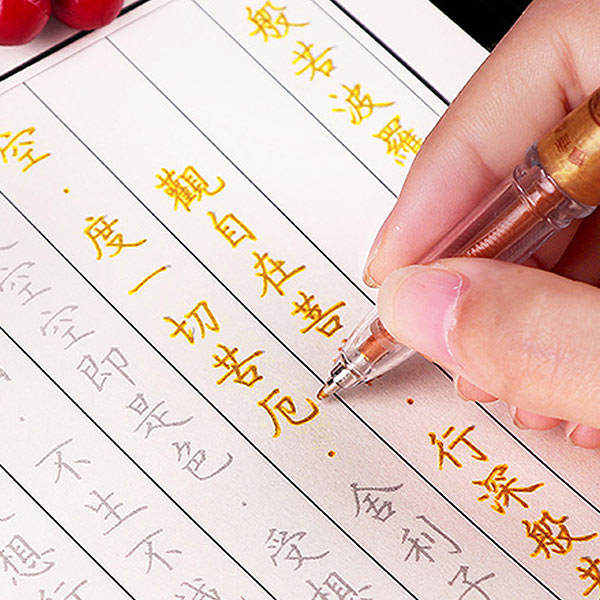 般若波羅
觀自在菩 · 行深般若
空 · 度一切苦厄 · 舍利子
空空即是色 · 受想
· 不生不
想行